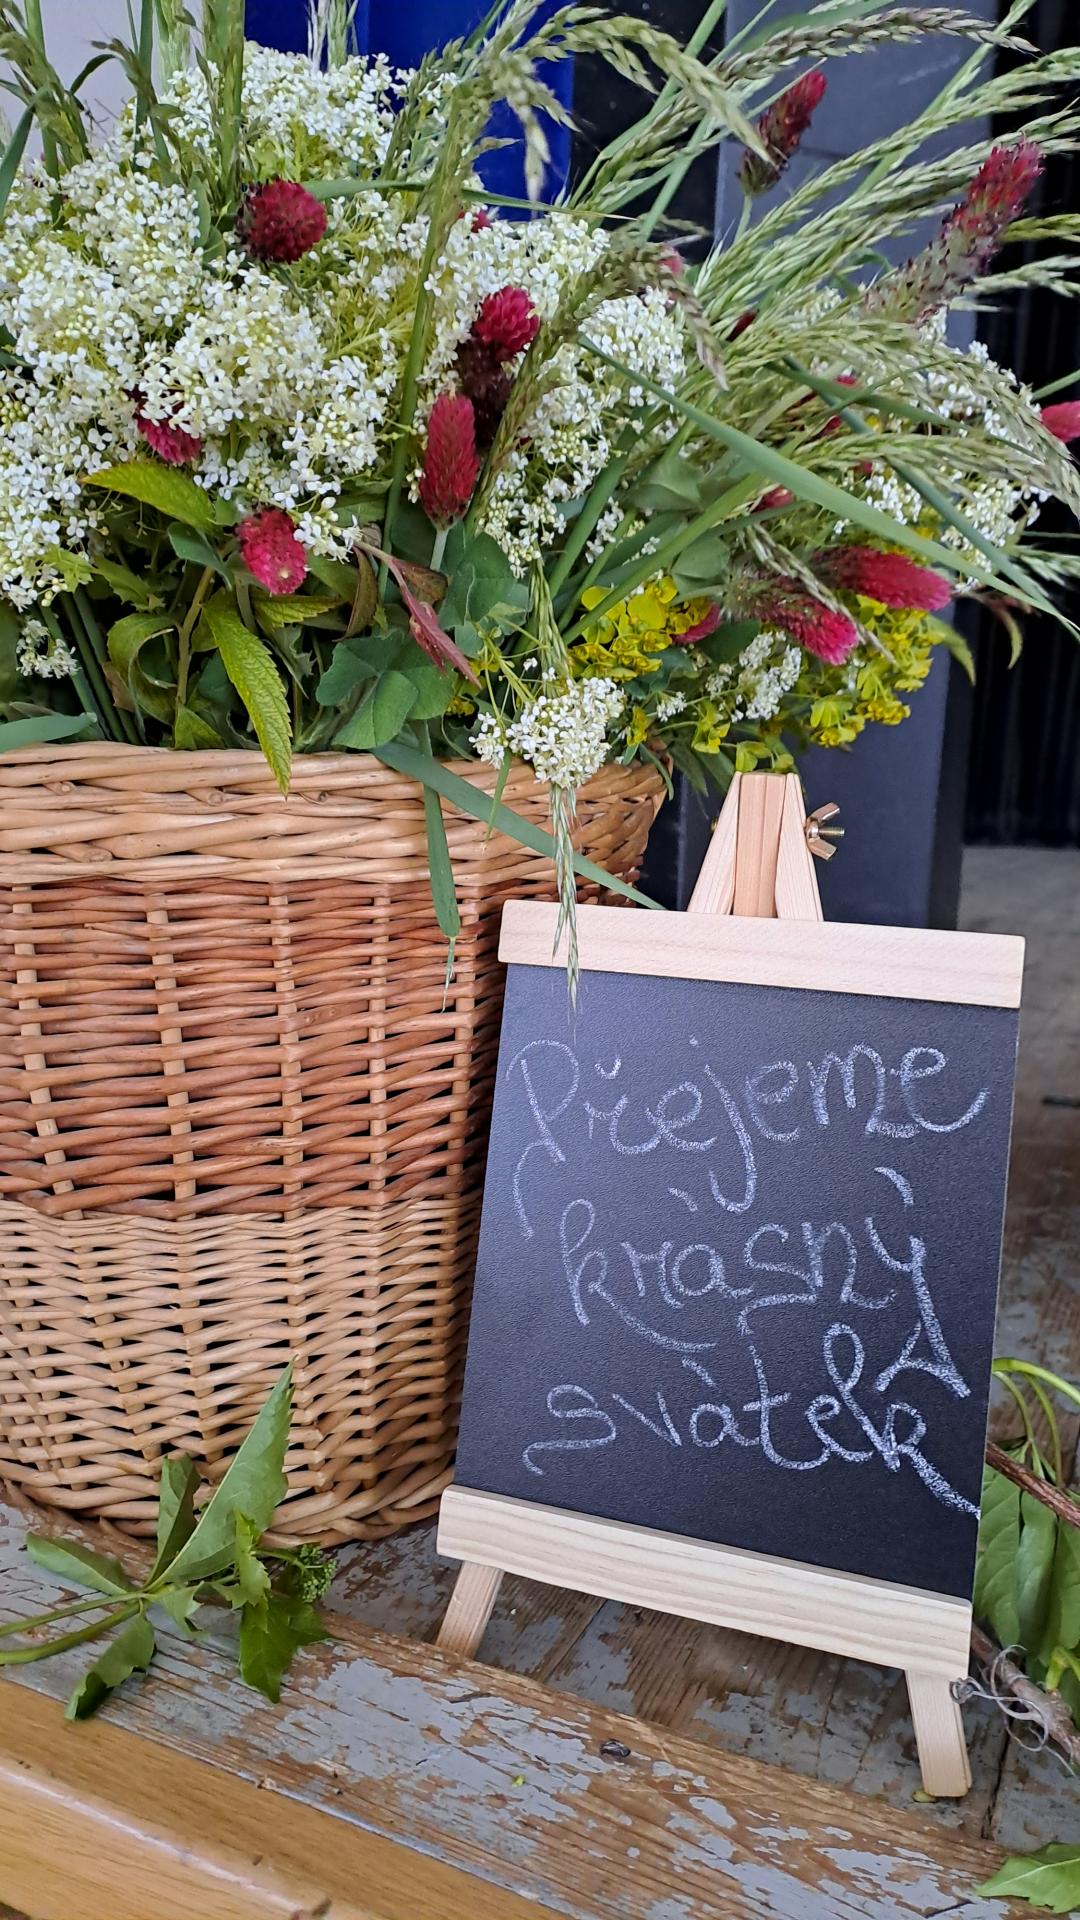 Přejeme
krásný
svátek